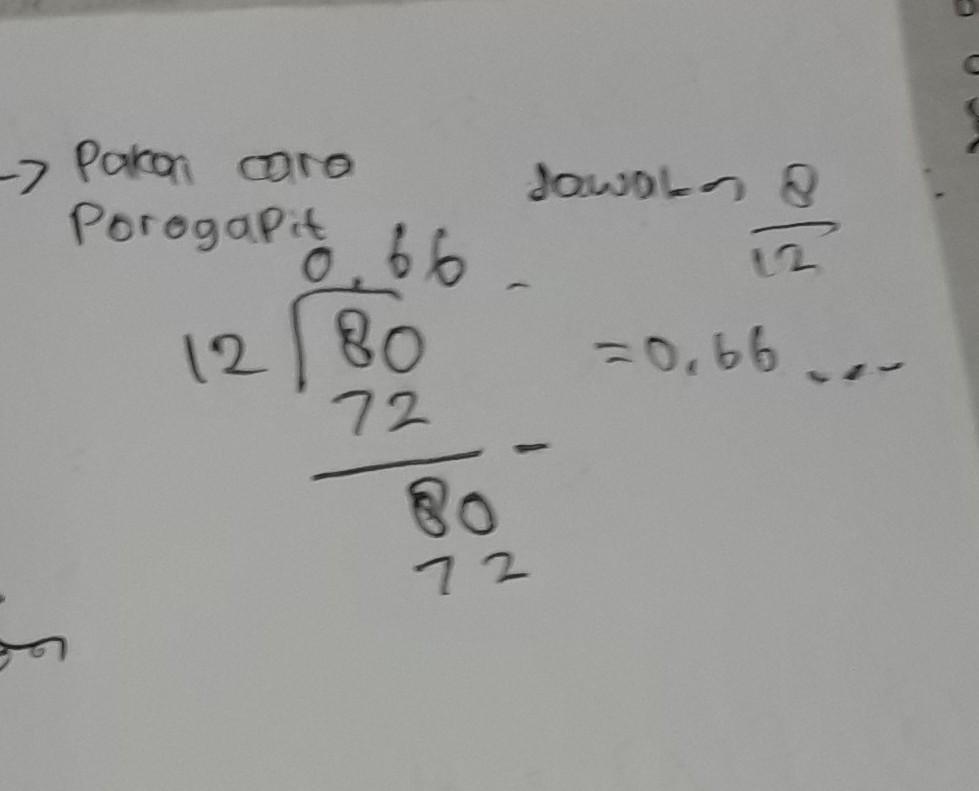 → Pakai cara
Porogapit
0,66
12 80
72
-
80
72
Jawab → 8
12
= 0,66 ...